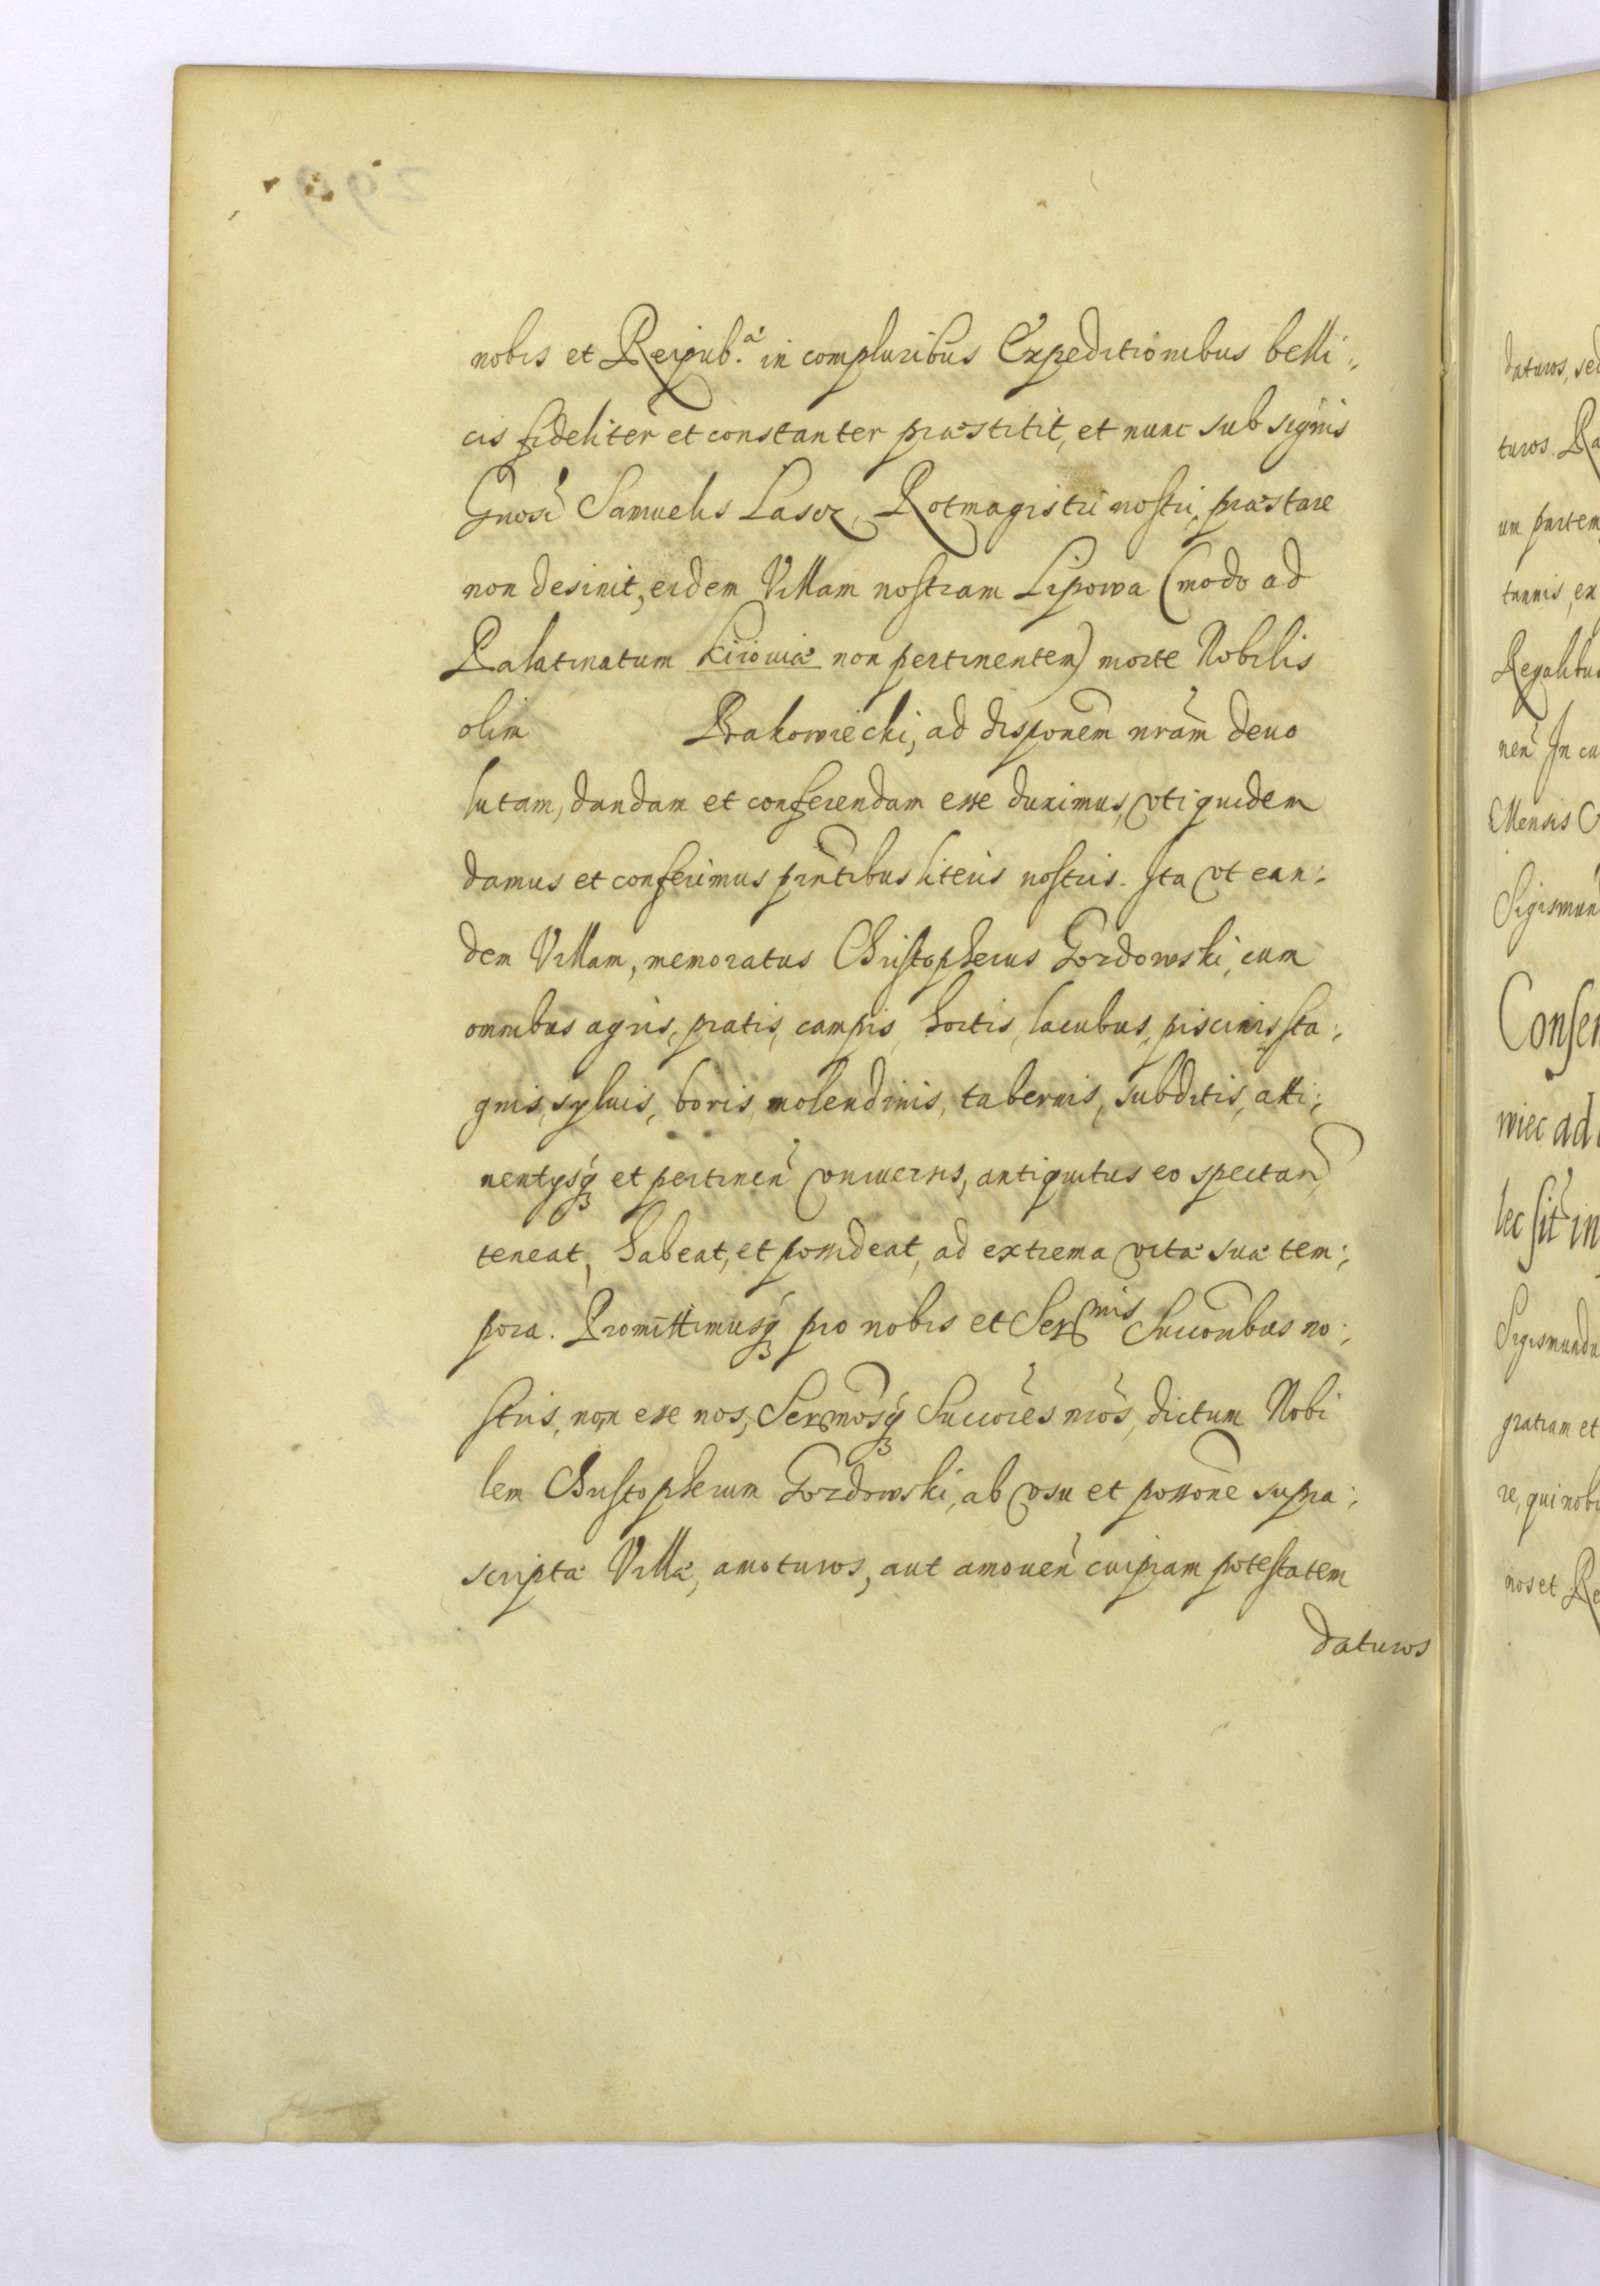 nobis et Reipub.ᵃ in compluribus Expeditionibus belli:
cis fideliter et constanter præstitit, et nunc sub signis
Gnosi Samuelis Lascz, Rotmagistri nostri, præstare
non desinit, eidem Villam nostram Lipowa (modo ad
Palatinatum Kiiouiæ non pertinentem) morte Nobilis
olim Brakowiecki, ad disponem nram deuo
lutam, dandam et conferendam esse duximus, vti quidem
damus et conferimus pntibus literis nostris. Ita vt ean:
dem Villam, memoratus Christopherus Gozdowski, cum
omnibus agris, pratis, campis, hortis, lacubus, piscinis, sta:
gnis, syluis, boris, molendinis, tabernis, subditis, atti:
nentysq et pertinen vniuersis, antiquitus eo spectan
teneat, habeat, et possideat, ad extrema vitæ suæ tem:
pora. Promittimusq pro nobis et Serᵐⁱˢ Succoribus no:
stris, non esse nos, Sermosq Succores nros, dictum Nobi
lem Christopherum Gozdowski, ab vsu et possone supra:
scriptæ Villæ, amoturos, aut amouen cuipiam potestatem
daturos
daturos, sed
turos. Ra
um partem
tannis, ex
Regalibus
nen In cu
Mensis
Sigismun
Consen
wiec ad
lec sit in
Sigismundu
gratiam et
re, qui nobi
nos et Re